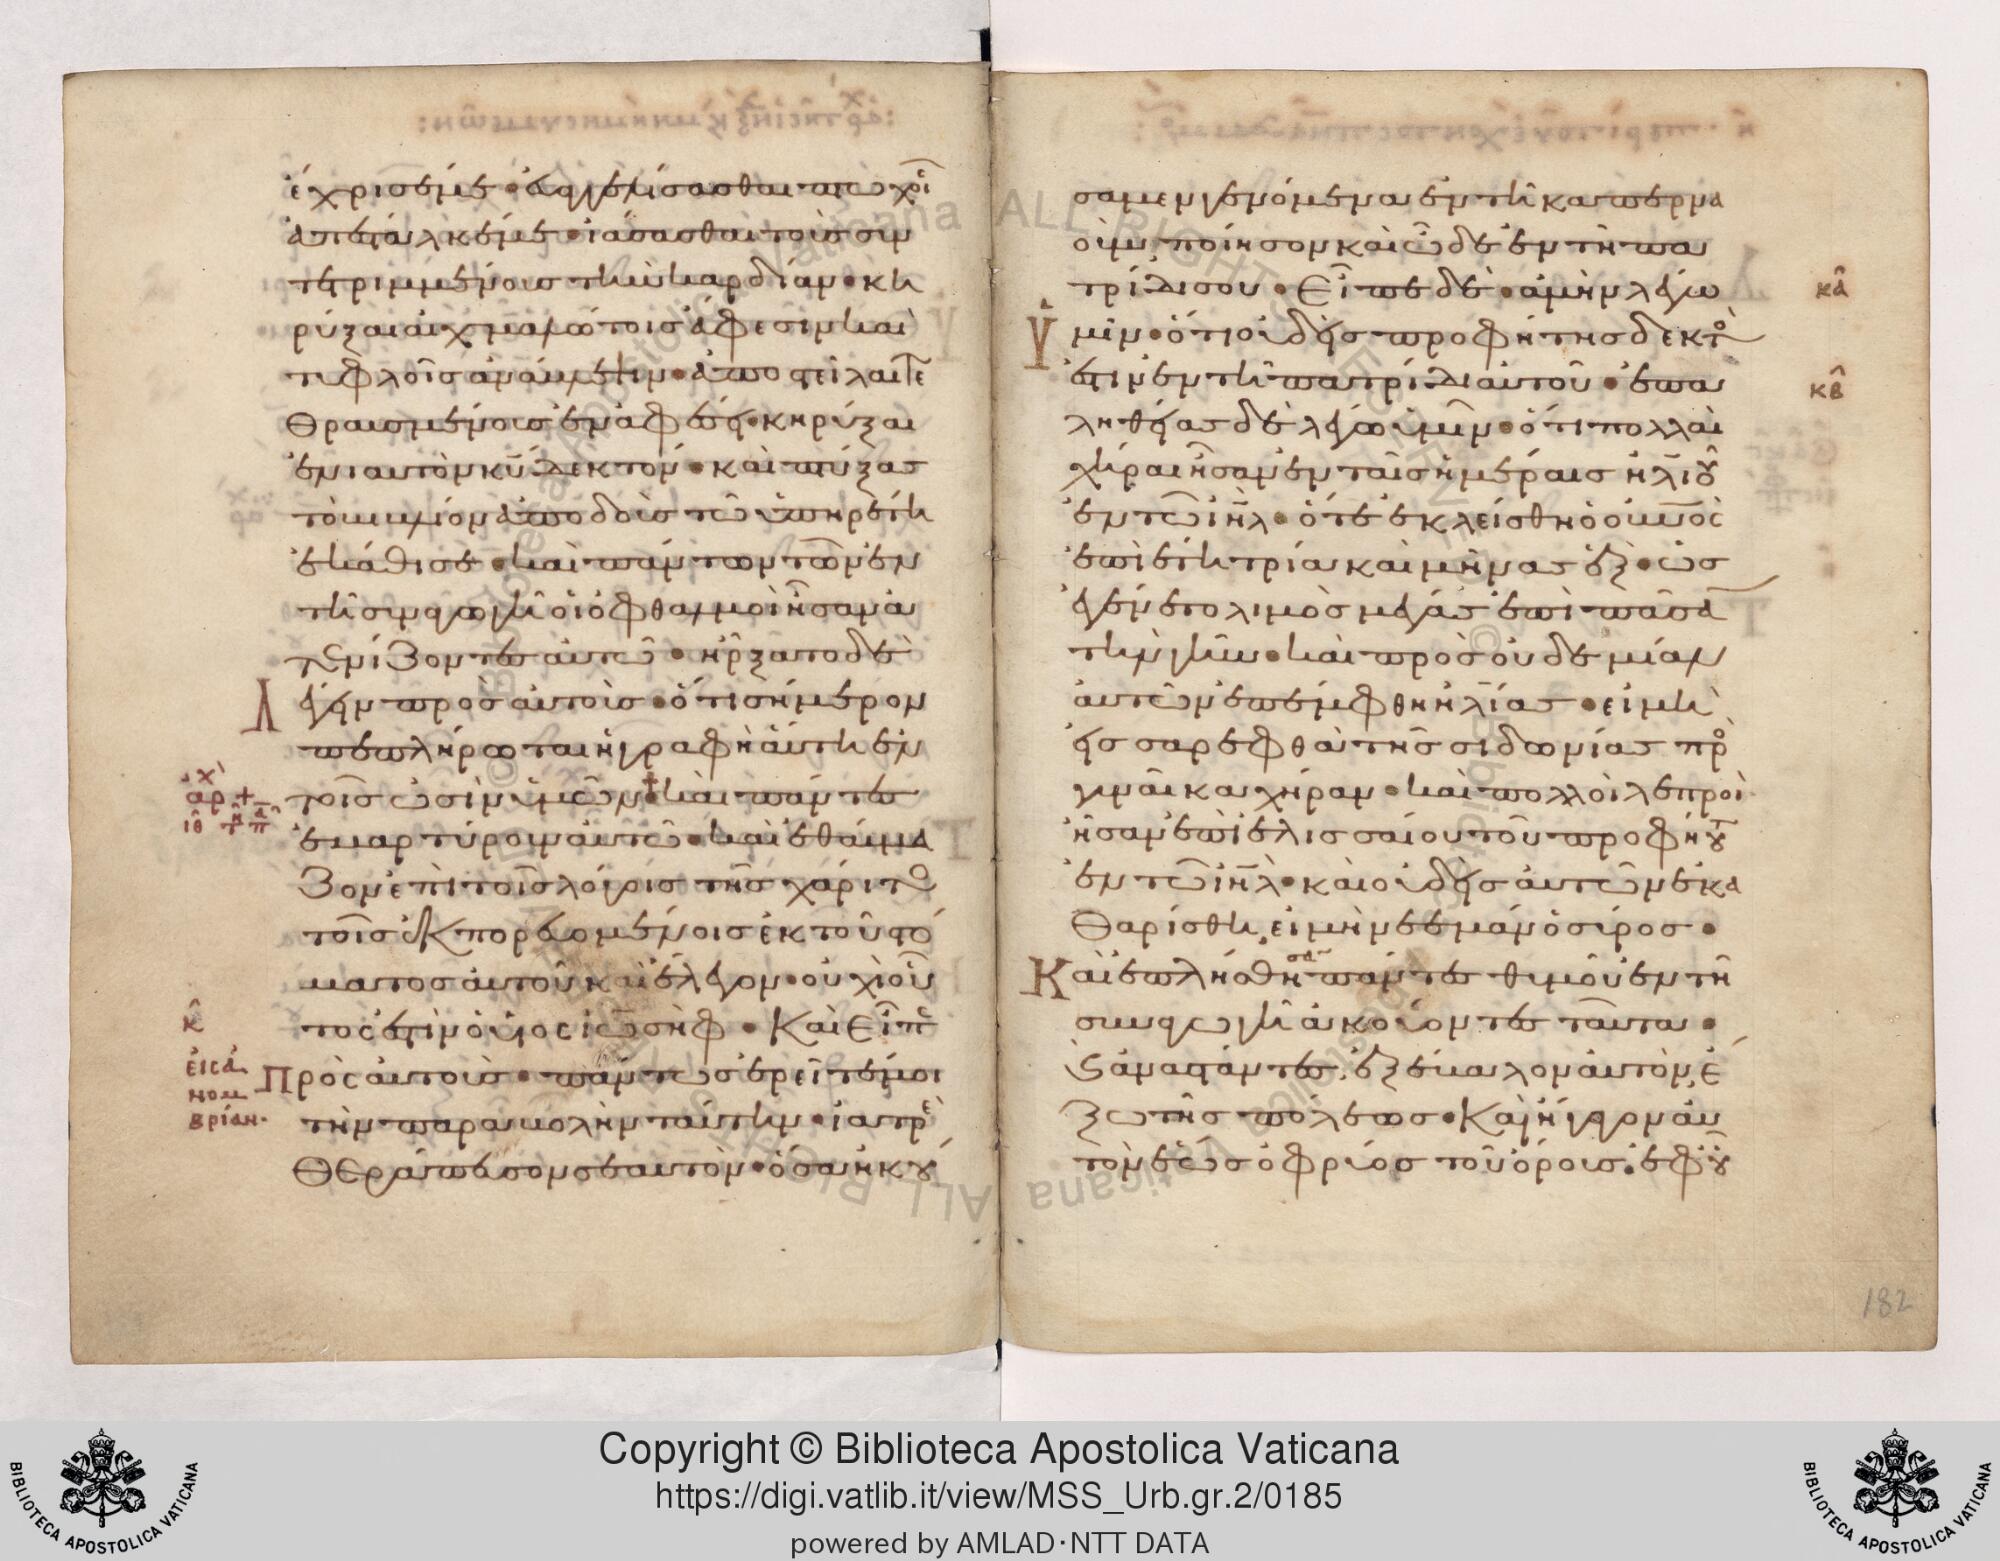 ἔχρισέ με · εὐαγγελίσασθαι πτωχοῖ
ἀπέσταλκέ με · ἰάσασθαι τοὺς συν
τετριμμένους τὴν καρδίαν · κη
ρύξαι αἰχμαλώτοις ἄφεσιν καὶ
τυφλοῖς ἀνάβλεψιν · ἀποστεῖλαι τε
θραυσμένους ἐν ἀφέσει · κηρύξαι
ἐνιαυτὸν κ̅υ̅ δεκτόν · καὶ πτύξας
τὸ βιβλίον ἀποδοὺς τῶ ὑπηρέτη
ἐκάθισε · καὶ πάντων τῶν ἐν
τῆ συναγωγῆ οἱ ὀφθαλμοὶ ἦσαν ἀ
τενίζοντες αὐτῶ · ἤρξατο δὲ
λέγειν πρὸς αὐτοὺς · ὅτι σήμερον
πεπλήρωται ἡ γραφὴ αὕτη ἐν
τοῖς ὠσὶν ὑμῶν · καὶ πάντες
ἐμαρτύρουν αὐτῶ · καὶ ἐθαύμα
ζον ἐπὶ τοῖς λόγοις τῆς χάριτο
τοῖς ἐκπορευομένοις ἐκ τοῦ στό
ματος αὐτοῦ καὶ ἔλεγον · οὐχὶ οὗ
τός ἐστιν ὁ υἱὸς ἰωσήφ · Καὶ εἶπε
Πρὸς αὐτοὺς · πάντως ἐρεῖτέ μοι
τὴν παραβολὴν ταύτην · ἰατρὲ
θεράπευσον σεαυτὸν · ὅσα ἠκού
ιθ
κ
σαμεν γενόμενα ἐν τῆ καπερνα
οὺμ ποίησον καὶ ὧδε ἐν τῆ πα
τρίδι σου · Εἶπε δὲ · ἀμὴν λέγω
ὑμῖν · ὅτι οὐδεὶς προφήτης δεκτὸ
ἐστιν ἐν τῆ πατρίδι αὐτοῦ · ἐπ ἀ
ληθείας δὲ λέγω ὑμῖν · ὅτι πολλαὶ
χῆραι ἦσαν ἐν ταῖς ἡμέραις ἠλιοῦ
ἐν τῶ ι̅η̅λ · ὅτε ἐκλείσθη ὁ ο̅υ̅ν̅ος
ἐπὶ ἔτη τρία καὶ μῆνας ἕξ · ὡς
ἐγένετο λιμὸς μέγας ἐπὶ πᾶσα
τὴν γῆν · καὶ πρὸς οὐδεμίαν
αὐτῶν ἐπέμφθη ἠλίας · εἰ μὴ
εἰς σαρεφθὰ τῆς σιδωνίας πρὸ
γυναῖκα χήραν · καὶ πολλοὶ λεπροὶ
ἦσαν ἐπὶ ἐλισσαίου τοῦ προφήτου
ἐν τῶ ι̅η̅λ · καὶ οὐδεὶς αὐτῶν ἐκα
θαρίσθη, εἰ μὴ νεεμὰν ὁ σύρος ·
Καὶ ἐπλήσθησα πάντες θυμοῦ ἐν τῆ
συναγωγῆ ἀκούοντες ταῦτα ·
ἐξέβαλον αὐτὸν ἔ
ξω τῆς πόλεως · Καὶ ἤγαγον αὐ
τὸν ἕως ὀφρύος τοῦ ὄρους · ἐφ οὗ
κα
κβ
182
Copyright © Biblioteca Apostolica Vaticana
https://digi.vatlib.it/view/MSS_Urb.gr.2/0185
powered by AMLAD·NTT DATA
BIBLIOTECA APOSTOLICA VATICANA
BIBLIOTECA APOSTOLICA VATICANA